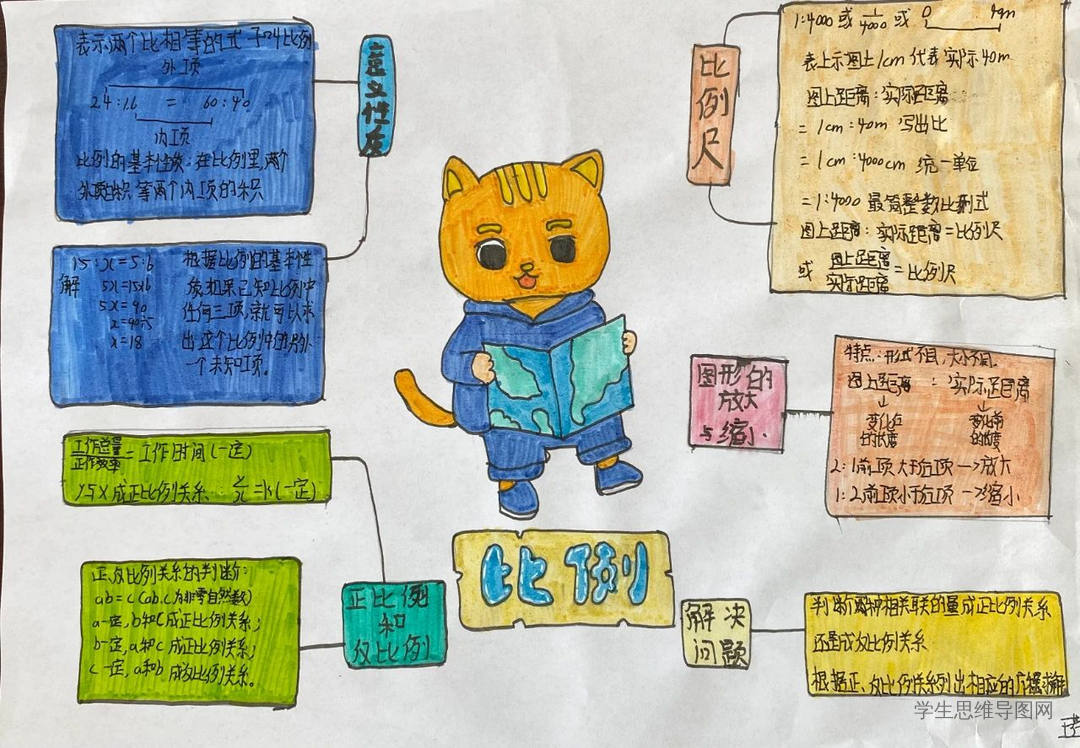 表示两个比相等的式子叫比例
外项
2.4:1.6 = 60:40
内项
比例的基本性质:在比例里,两个
外项的积等两个内项的积
意义性质
15:x=5:6
解 5x=15x6
5x=90
x=90÷5
x=18
根据比例的基本性
质,如果已知比例中
任何三项,就可以求
出这个比例中的另外
一个未知项。
工作总量/工作效率=工作时间(一定)
y与x成正比例关系 y/x=k(一定)
正、反比例关系的判断:
ab=c(ab.c为非零自然数)
a一定,b和c成正比例关系;
b一定,a和c成正比例关系;
c一定,a和b成反比例关系。
正比例
和
反比例
比例
比例尺
1:4000或1/4000或 0 40m
表上示图上1cm代表实际40m
图上距离:实际距离
=1cm:40m 写出比
=1cm:4000cm 统一单位
=1:4000 最简整数比形式
图上距离:实际距离=比例尺
或 图上距离/实际距离=比例尺
图形的
放大
与缩小
特点:形式不同,大小不同.
图上距离:实际距离
变化后
的长度
变化前
的长度
2:1前项大于后项→放大
1:2前项小于后项→缩小
解决
问题
判断两种相关联的量成正比例关系
还是成反比例关系
根据正、反比例关系列出相应的方程求解
学生思维导图网